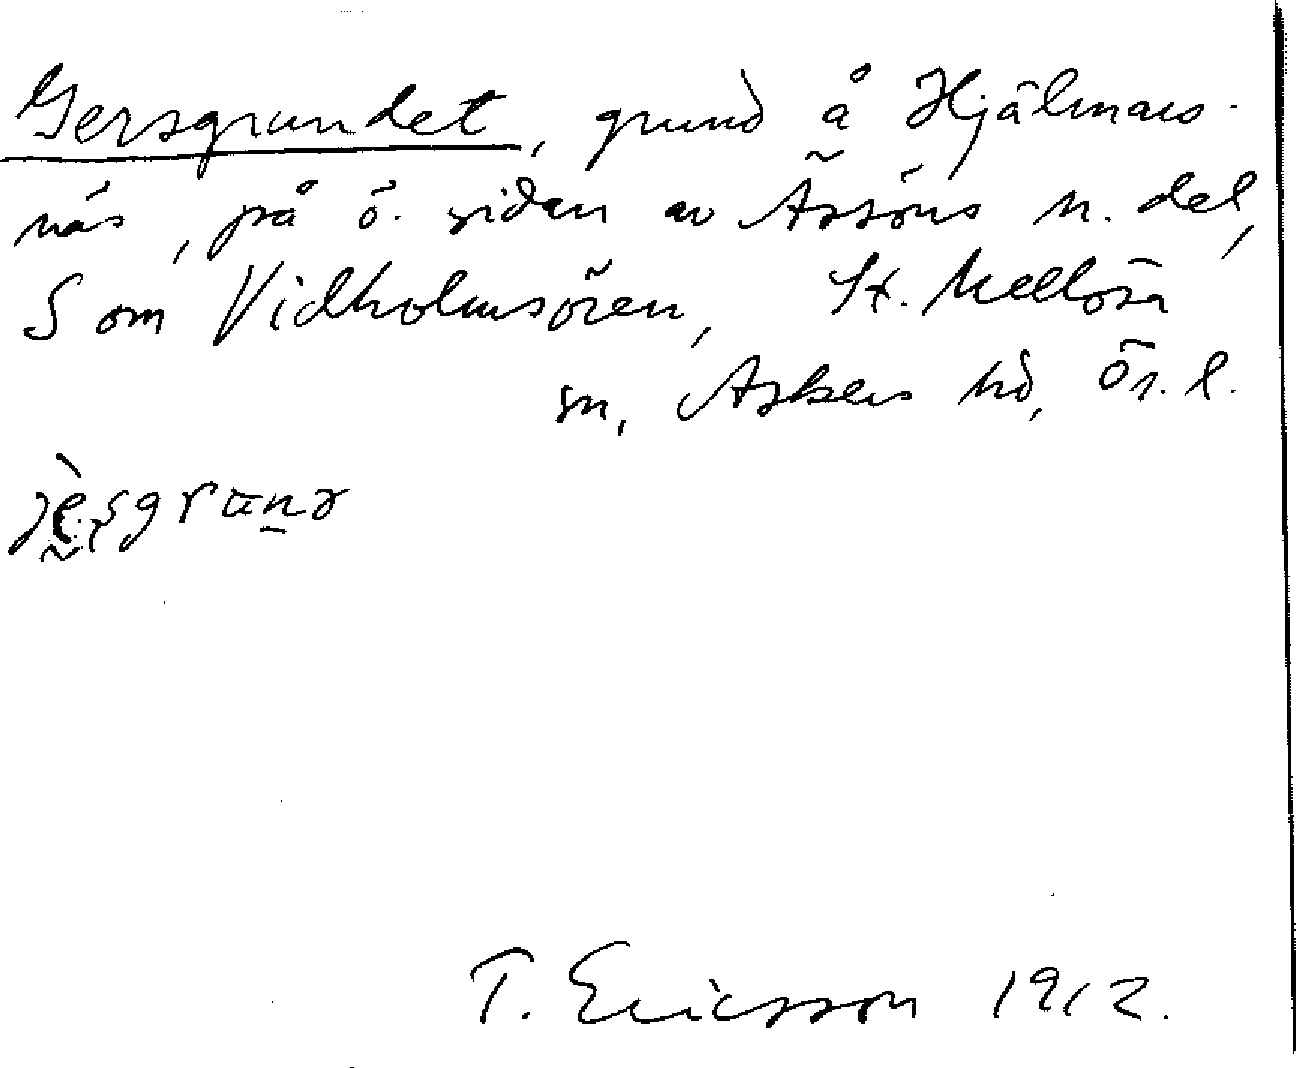 Gersgrundet, grund å Hjälmars-
näs, på ö. sidan av Ässöns n. del,
S om Vidholmsören, St. Mellösa
sn, Askers hd, Ör. l.
T. Ericsson 1912.